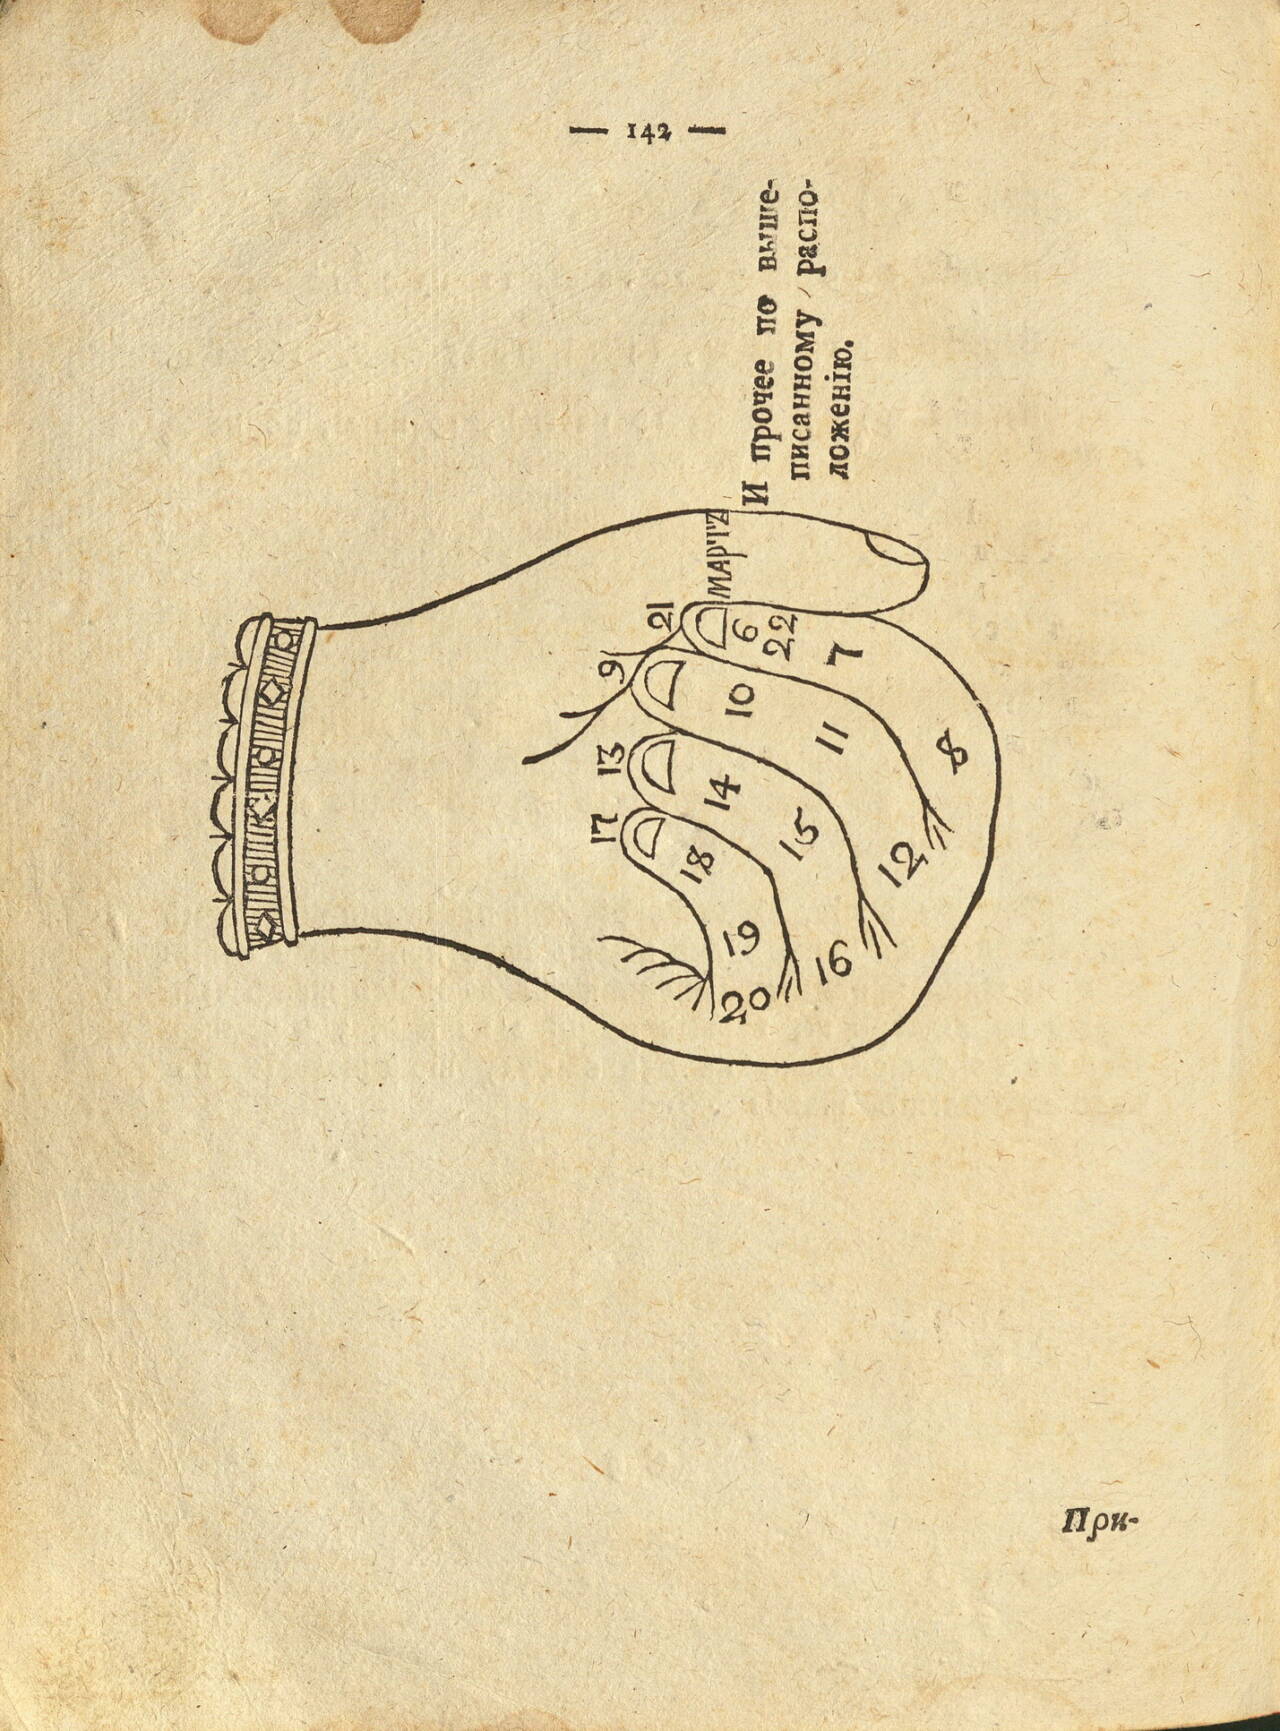 — 142 —
И прочее по выше-
писанному распо-
ложенію.
МАРТЪ
21
6
22
7
8
9
10
11
12
13
14
15
16
17
18
19
20
При-